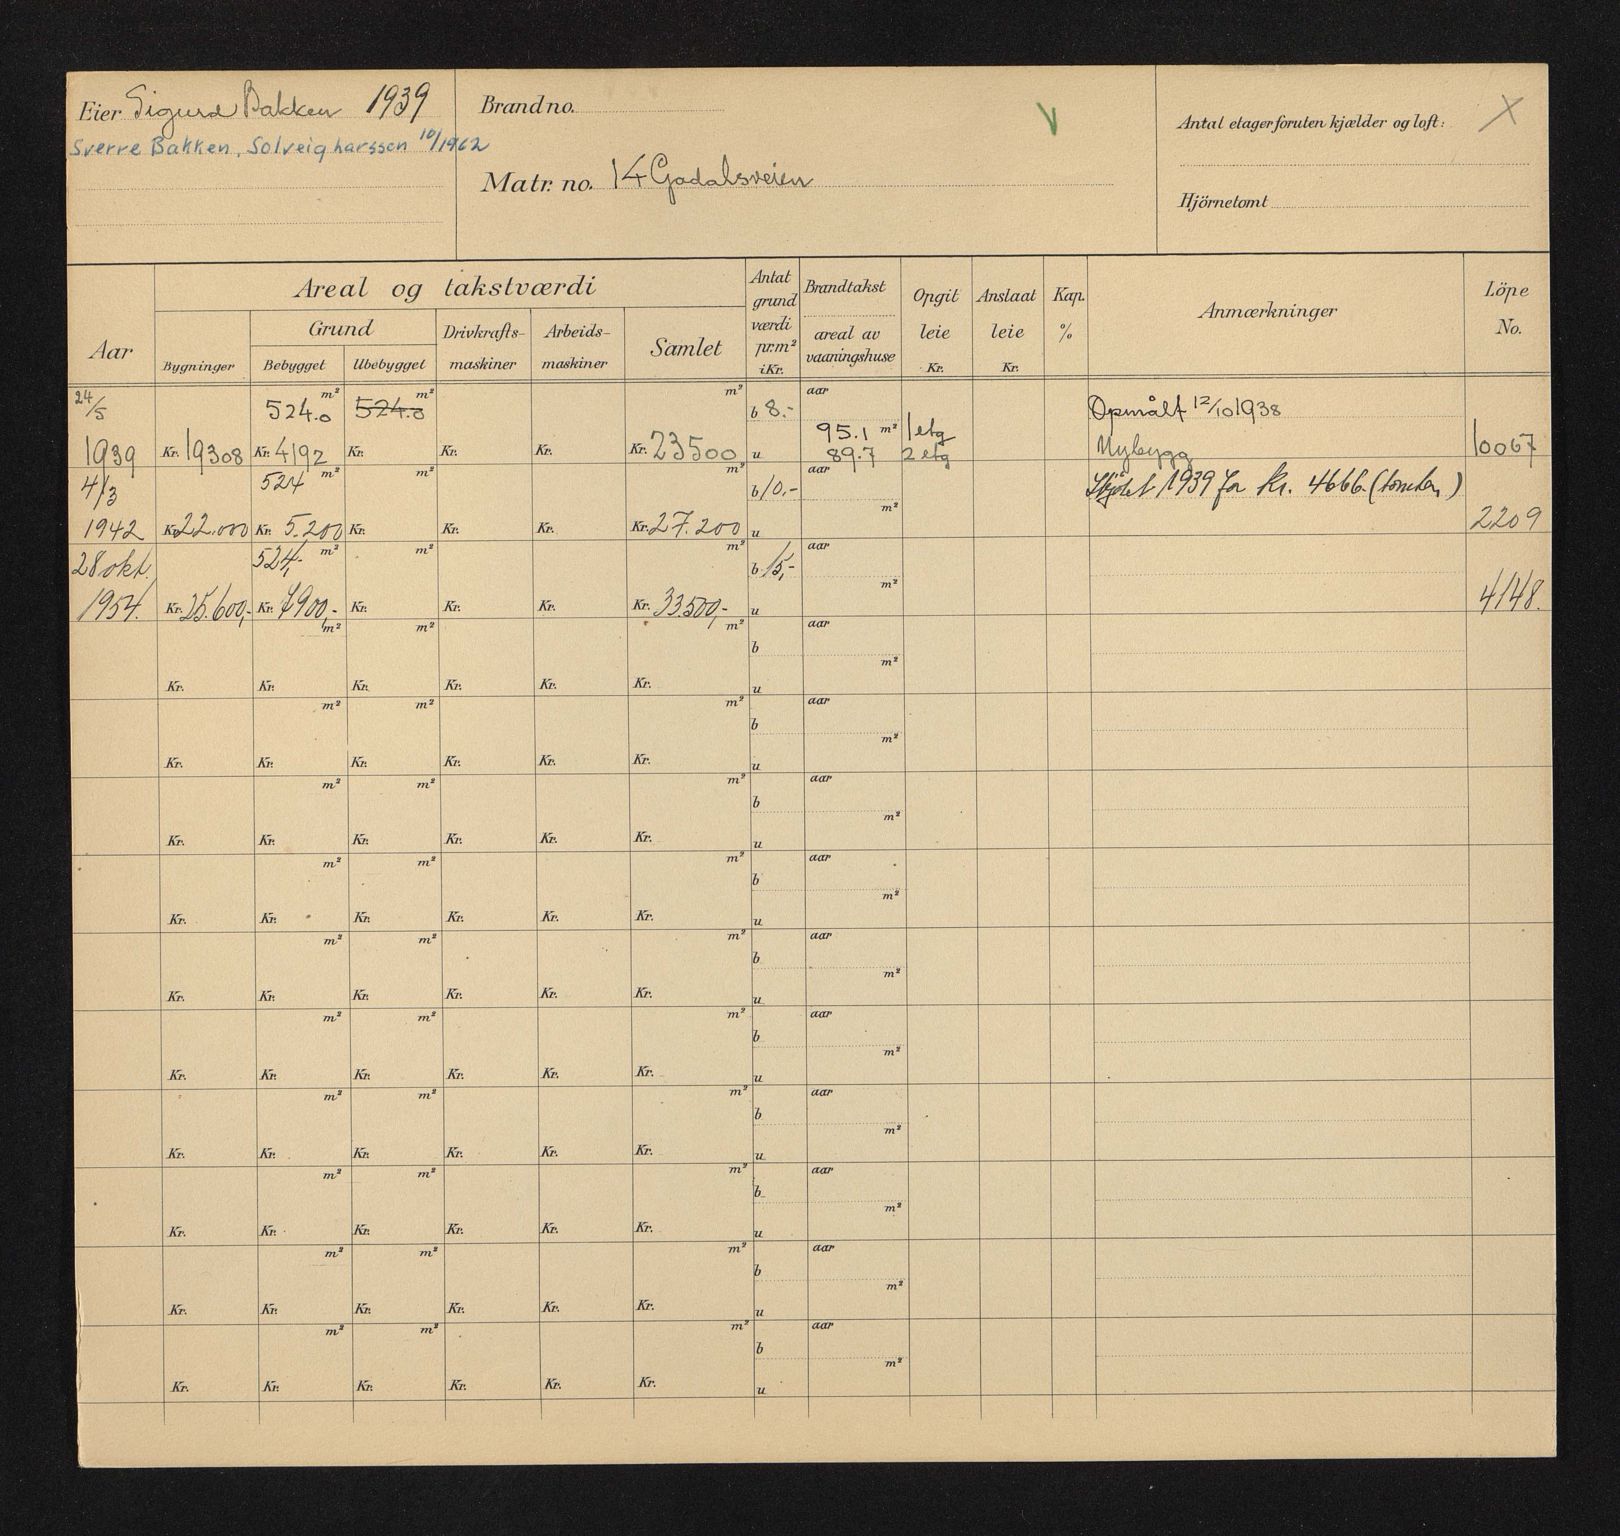 Eier Sigurd Bakken 1939
Sverre Bakken, Solveig Larssen 10/1962
Brandno.
V
Matr. no. 14 Gadalsveien
Antal etager foruten kjælder og loft: X
Hjörnetomt
Aar
Areal og takstværdi
Bygninger
Grund
Bebygget
Ubebygget
Drivkrafts-
maskiner
Arbeids-
maskiner
Samlet
Antat
grund
værdi
pr. m²
i Kr.
Brandtakst
areal av
vaaningshuse
Opgit
leie
Kr.
Anslaat
leie
Kr.
Kap.
%
Anmærkninger
Löpe
No.
24/5 524.0 m² 524.0 m² m² b 8.- aar Opmålt 12/10 1938
95.1 m² 1 etg
1939 Kr. 19308 Kr. 4192 Kr. Kr. Kr. Kr. 23500 u 89.7 2 etg Nybygg 10067
4/3 524 m² m² m² b 10.- aar Skjötet 1939 for kr. 4666 (tomten)
m²
1942 Kr. 22.000 Kr. 5.200 Kr. Kr. Kr. Kr. 27.200 u 2209
28 okt. 524,- m² m² m² b 15,- aar
m²
1954. Kr. 25.600,- Kr. 7900,- Kr. Kr. Kr. Kr. 33.500,- u 4148.
m² m² m² b aar
m²
Kr. Kr. Kr. Kr. Kr. Kr. u
m² m² m² b aar
m²
Kr. Kr. Kr. Kr. Kr. Kr. u
m² m² m² b aar
m²
Kr. Kr. Kr. Kr. Kr. Kr. u
m² m² m² b aar
m²
Kr. Kr. Kr. Kr. Kr. Kr. u
m² m² m² b aar
m²
Kr. Kr. Kr. Kr. Kr. Kr. u
m² m² m² b aar
m²
Kr. Kr. Kr. Kr. Kr. Kr. u
m² m² m² b aar
m²
Kr. Kr. Kr. Kr. Kr. Kr. u
m² m² m² b aar
m²
Kr. Kr. Kr. Kr. Kr. Kr. u
m² m² m² b aar
m²
Kr. Kr. Kr. Kr. Kr. Kr. u
m² m² m² b aar
m²
Kr. Kr. Kr. Kr. Kr. Kr. u